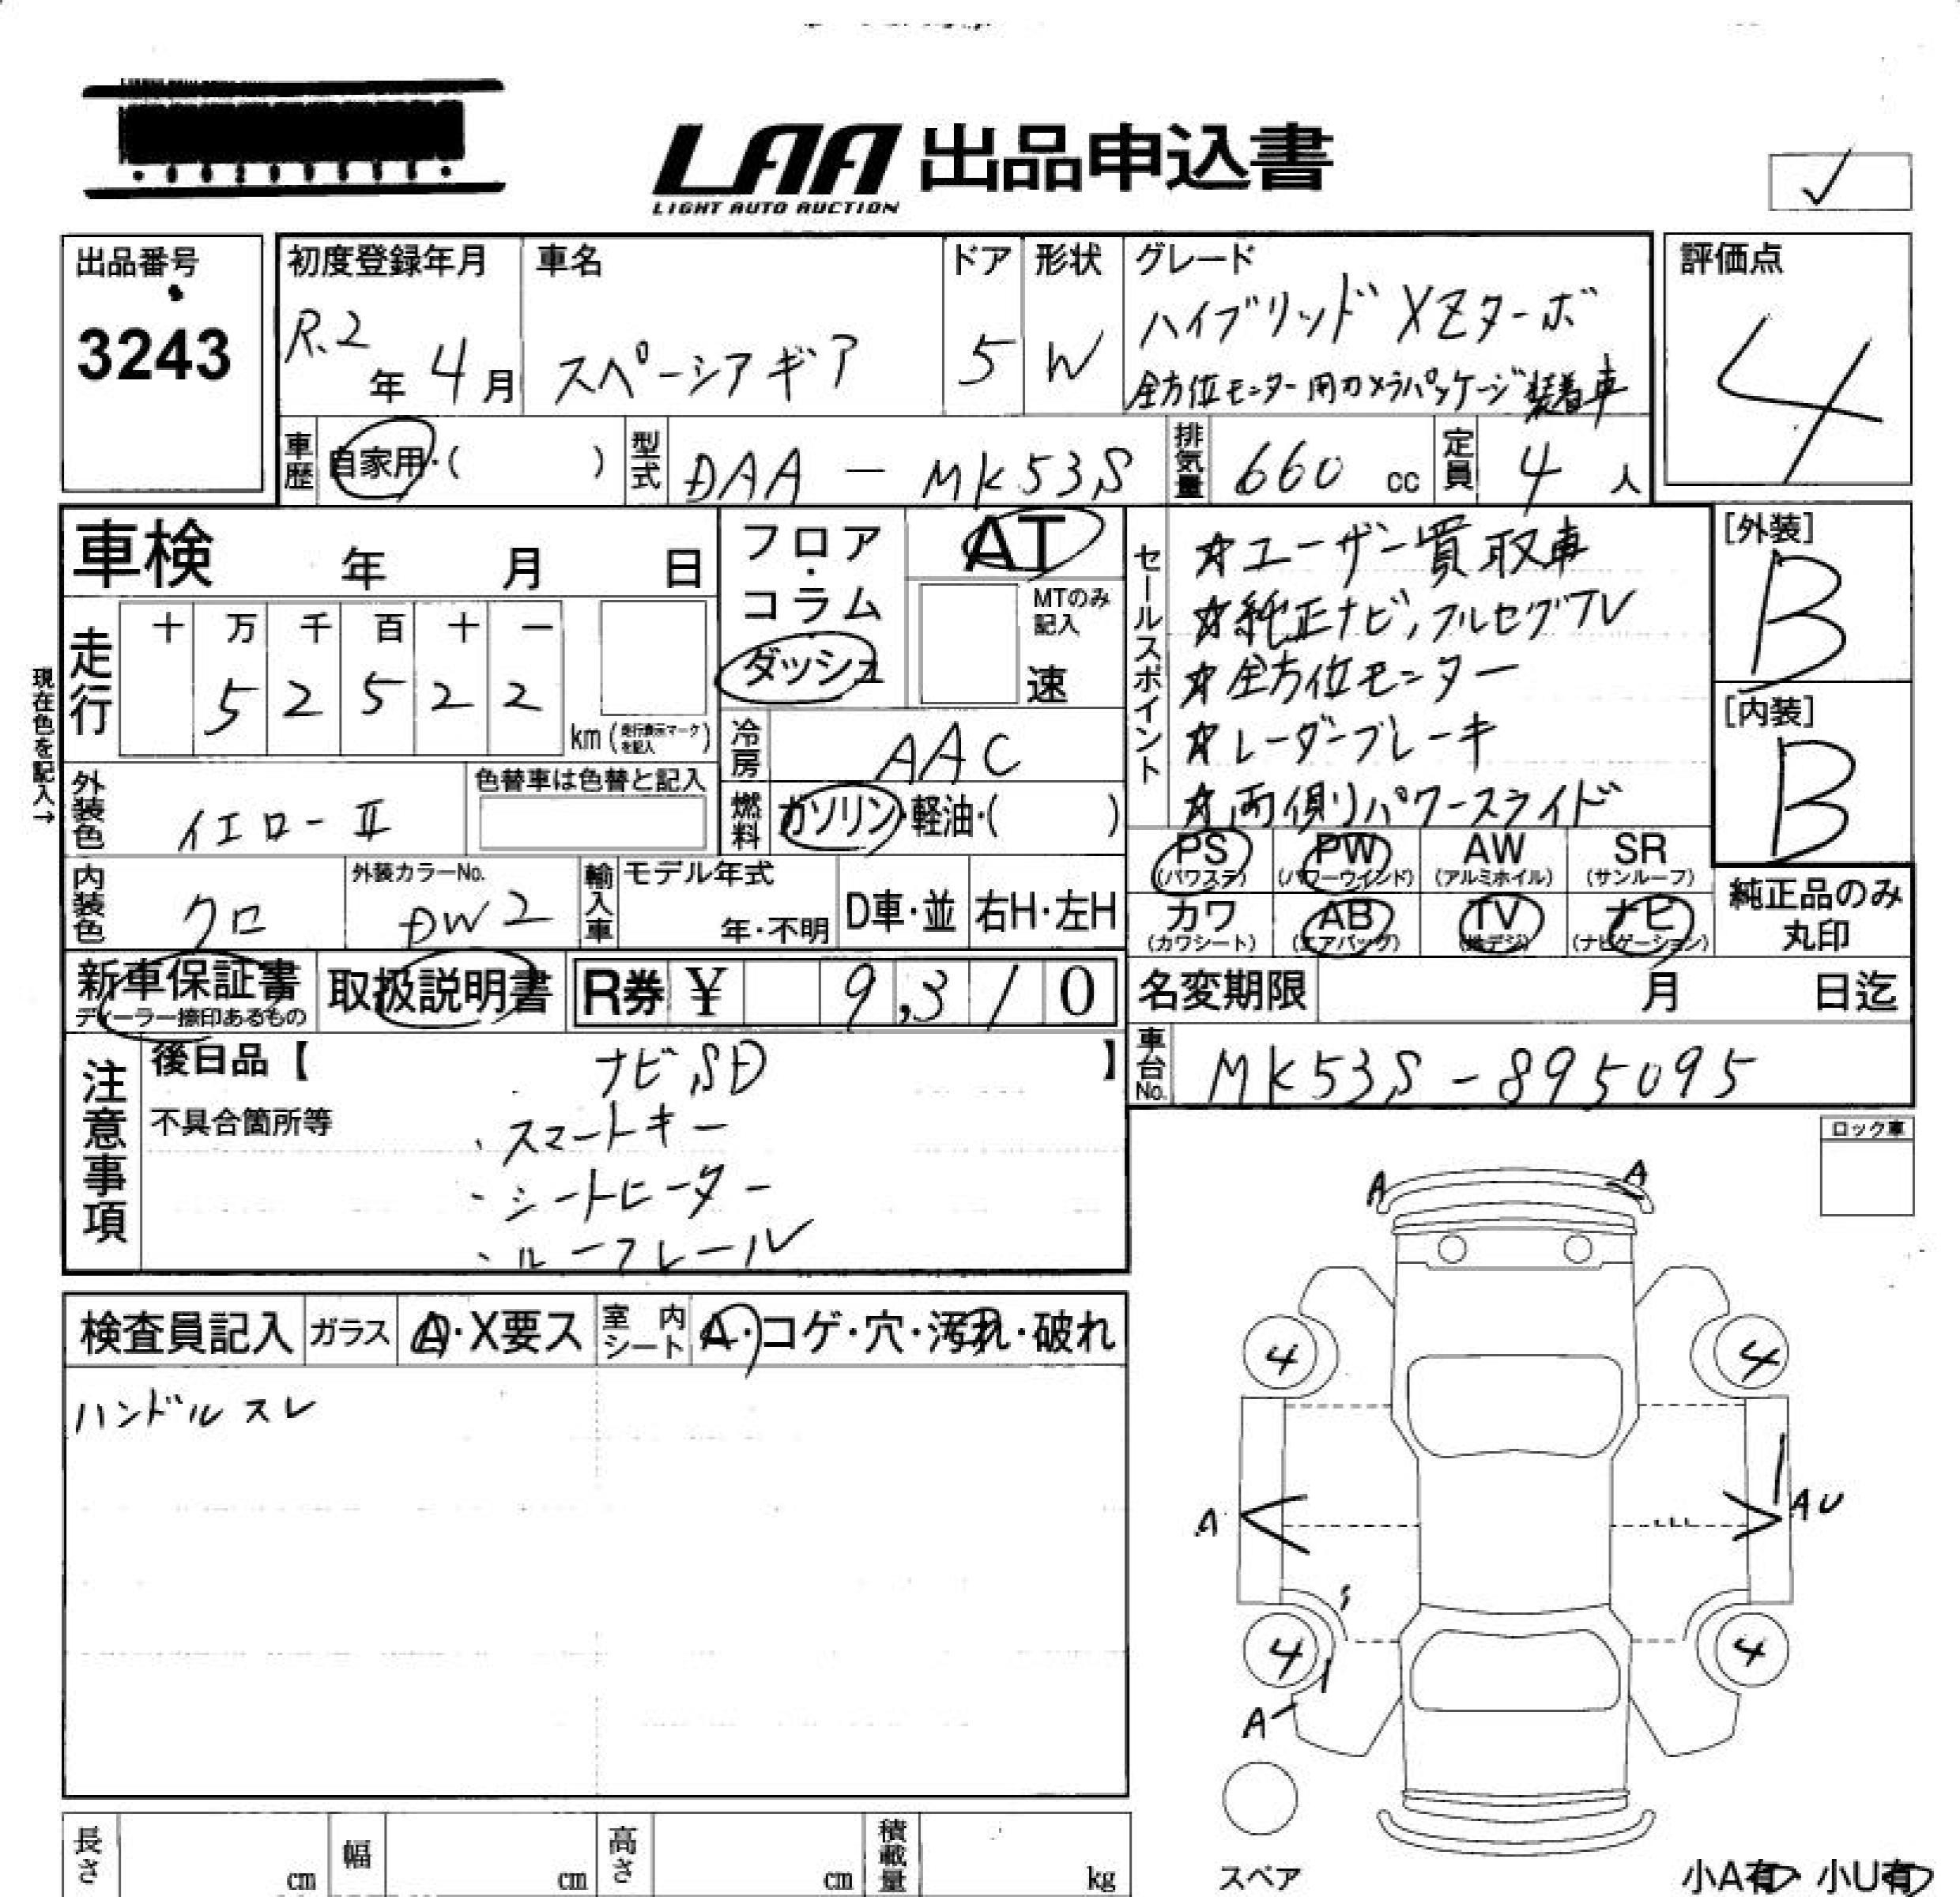 LAA 出品申込書
LIGHT AUTO AUCTION
✓
出品番号
3243
初度登録年月
R.2年 4月
車名
スペーシアギア
ドア
5
形状
W
グレード
ハイブリッド XZターボ
全方位モニター用カメラパッケージ装着車
評価点
4
車歴
自家用・( )
型式
DAA - MK53S
排気量
660 cc
定員
4 人
車検 年 月 日
フロア・コラム
ダッシュ
AT
MTのみ記入
速
セールスポイント
☆ユーザー買取車
☆純正ナビ、フルセグTV
☆全方位モニター
☆レーダーブレーキ
☆両側パワースライド
[外装]
B
[内装]
B
現在色を記入→
走行
十 万 千 百 十 一
5 2 5 2 2
km (走行表示マークを記入)
冷房
AAC
外装色
イエローII
色替車は色替と記入
燃料
ガソリン・軽油・( )
PS (パワステ)
PW (パワーウインド)
AW (アルミホイル)
SR (サンルーフ)
カワ (カワシート)
AB (エアバッグ)
TV (地デジ)
ナビ (ナビゲーション)
純正品のみ丸印
内装色
クロ
外装カラーNo.
DW2
輸入車
モデル年式
年・不明
D車・並
右H・左H
新車保証書
ディーラー捺印あるもの
取扱説明書
R券 ¥ 9,310
名変期限 月 日迄
車台No.
MK53S-895095
注意事項
後日品【 ナビSD 】
不具合箇所等
・スマートキー
・シートヒーター
・ルーフレール
ロック車
検査員記入
ガラス A・X要ス
室内シート A・コゲ・穴・汚れ・破れ
ハンドルスレ
A A
4 4
A AU
4 4
A
スペア
小A有 小U有
長さ cm
幅 cm
高さ cm
積載量 kg